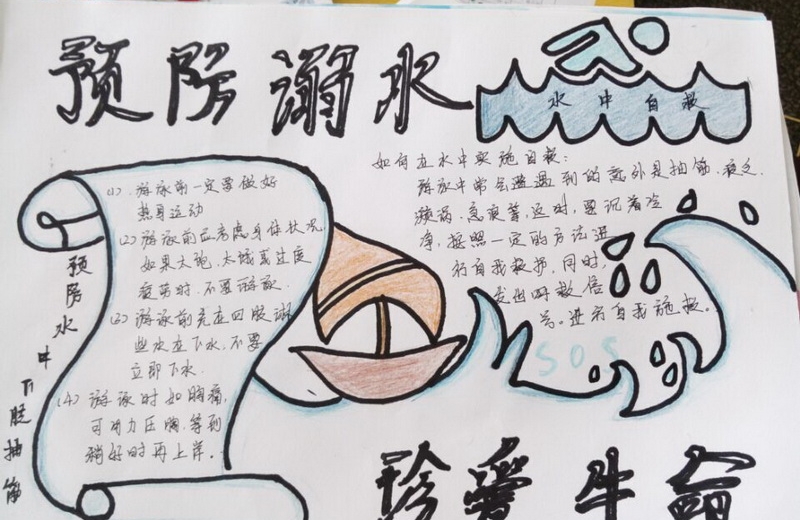 预防溺水
水中自救
如何在水中实施自救:
游泳中常会遭遇到的意外是抽筋、疲乏、
漩涡、急浪等,这时,要沉着冷
净,按照一定的方法进
行自我救护,同时,
发出呼救信
号。进行自我施救。
SOS
(1)、游泳前一定要做好
热身运动
(2)游泳前应考虑身体状况,
如果太饱、太饿或过度
疲劳时,不要游泳。
(3)游泳前先在四肢淋
些水在下水,不要
立即下水。
(4)游泳时如胸痛,
可用力压胸,等到
稍好时再上岸。
预防水中下肢抽筋
珍爱生命